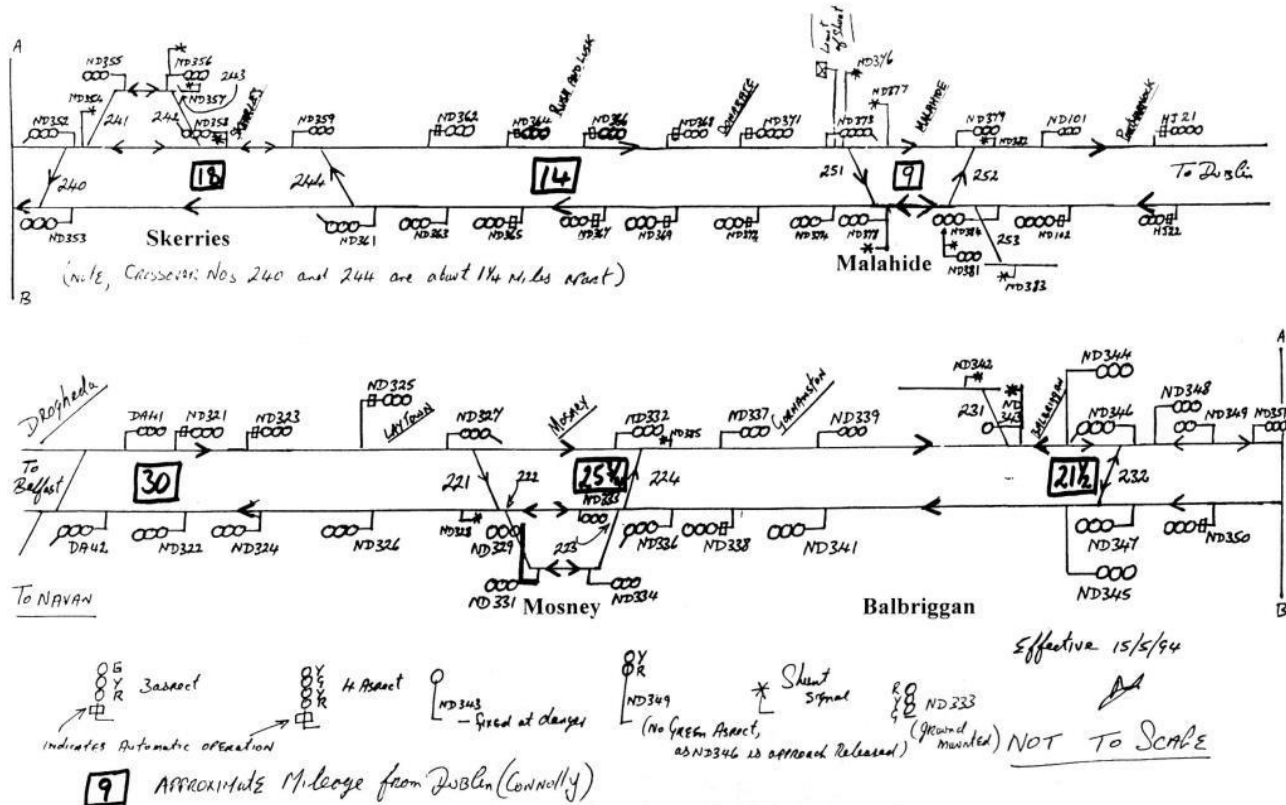 A
ND355
ND356
243
ND352
ND354
241
242
ND357
ND358
SKERRIES
ND359
ND362
ND364
RUSH AND LUSK
ND366
ND368
DONABATE
ND371
Limit of Shunt
ND376
ND373
ND377
MALAHIDE
ND379
ND382
ND101
PORTMARNOCK
HJ21
240
18
244
14
251
9
252
To Dublin
ND353
Skerries
ND361
ND363
ND365
ND367
ND369
ND372
ND374
ND378
Malahide
ND384
ND381
253
ND383
ND102
HJ22
(NOTE, CROSSOVER Nos 240 and 244 are about 1¼ Miles apart)
B
DROGHEDA
DA41
ND321
ND323
ND325
LAYTOWN
ND327
MOSNEY
ND332
ND335
ND337
GORMANSTON
ND339
ND342
231
ND343
BALBRIGGAN
ND344
ND346
ND348
ND349
ND351
A
To Belfast
30
221
222
25¾
ND333
224
21½
232
DA42
ND322
ND324
ND326
ND328
ND329
223
ND336
ND338
ND341
ND347
ND350
To NAVAN
ND331
Mosney
ND334
Balbriggan
ND345
B
Effective 15/5/94
G
Y
R
3 aspect
Y
G
Y
R
4 Aspect
ND343
– fixed at danger
Y
R
ND349
(No GREEN ASPECT,
as ND346 is approach Released)
Shunt
Signal
R
Y
G
ND333
(ground
mounted)
INDICATES AUTOMATIC OPERATION
NOT TO SCALE
9 APPROXIMATE Mileage from DUBLIN (CONNOLLY)